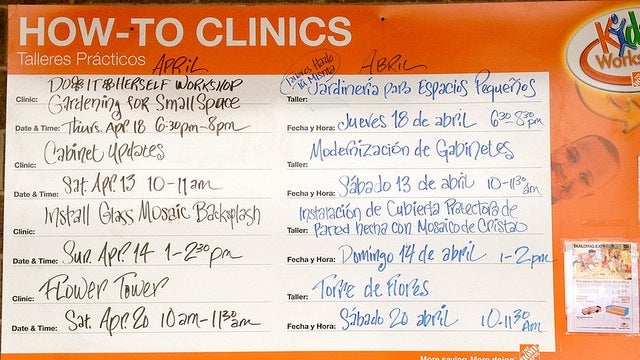 HOW-TO CLINICS
Talleres Prácticos
APRIL
ABRIL
DO IT HERSELF WORKSHOP
Clinic: Gardening for Small Space
Date & Time: Thurs. Apr 18 6:30pm-8pm
Cabinet Updates
Clinic:
Date & Time: Sat. Apr 13 10-11am
Install Glass Mosaic Backsplash
Clinic:
Date & Time: Sun. Apr. 14 1-2:30pm
Flower Tower
Clinic:
Date & Time: Sat. Apr. 20 10am-11:30am
Talleres Hazlo
Tú Misma
Jardinería para Espacios Pequeños
Taller:
Fecha y Hora: Jueves 18 de abril 6:30-8:30pm
Modernización de Gabinetes
Taller:
Fecha y Hora: Sábado 13 de abril 10-11:30am
Instalación de Cubierta Protectora de
Taller: Pared hecha con Mosaico de Cristal
Fecha y Hora: Domingo 14 de abril 1-2pm
Torre de Flores
Taller:
Fecha y Hora: Sábado 20 abril 10-11:30Am
Kids
Works
More saving. More doing.